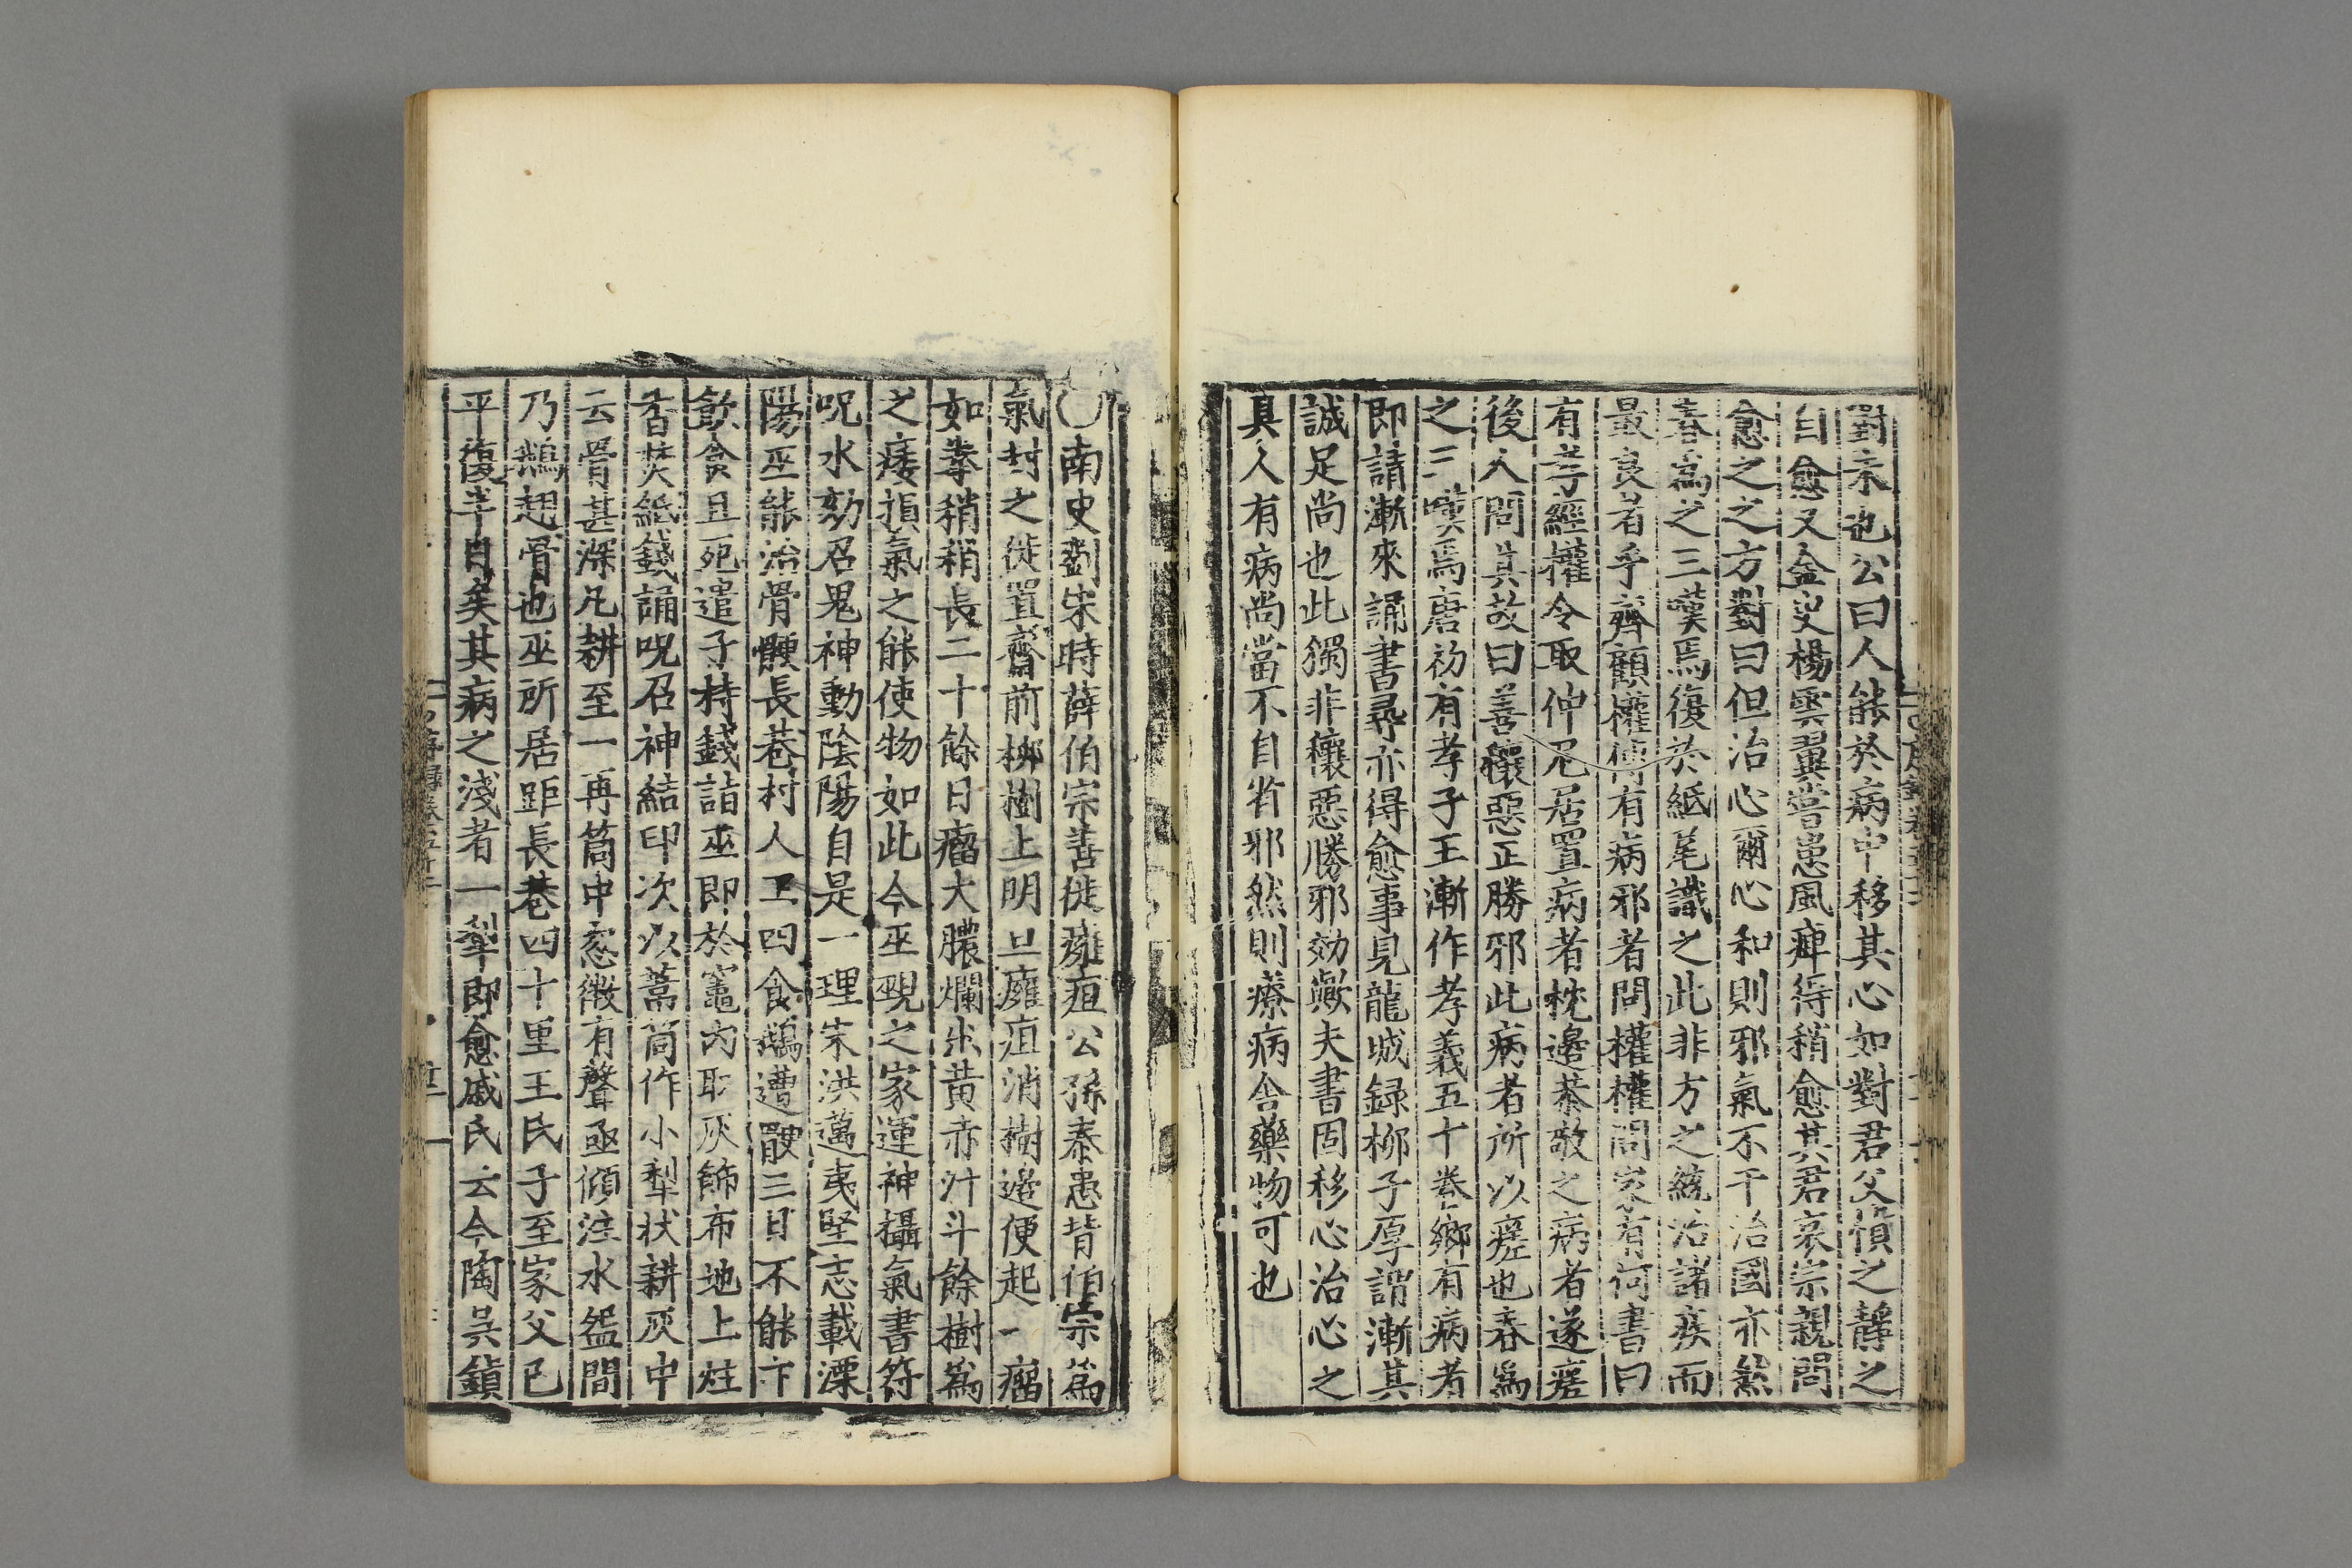 對宗也公曰人能於病中移其心如對君父慎之靜之
自愈又金叟楊雲翼嘗患風痺得稍愈其君哀宗親問
愈之之方對曰但治心爾心和則邪氣不干治國亦然
春爲之三嘆焉復於紙尾識之此非方之統治諸疾而
最良者乎齊顧權傳有病邪者問權權問家有何書曰
有孝經權令取仲尼居置病者枕邊恭敬之病者遂瘥
後人問其故曰善穰惡正勝邪此病者所以瘥也春爲
之三嘆焉唐初有孝子王漸作孝義五十卷鄉有病者
即請漸來誦書尋亦得愈事見龍城録柳子厚謂漸其
誠足尚也此獨非穰惡勝邪効歟夫書固移心治心之
具人有病尚當不自省邪然則療病舍藥物可也
〇南史劉宋時薛伯宗善徙癰疽公孫泰患背伯宗爲
氣封之徙置齋前柳樹上明旦癰疽消樹邊便起一瘤
如拳稍稍長二十餘日瘤大膿爛出黃赤汁斗餘樹爲
之痿損氣之能使物如此今巫覡之家運神攝氣書符
呪水劾召鬼神動陰陽自是一理宋洪邁夷堅志載溧
陽巫能治骨鯁長巷村人王四食鵝遭骾三日不能下
飲食且死遣子持錢詣巫即於竈內取灰篩布地上炷
香焚紙錢誦呪召神結印次以蒿筒作小犁狀耕灰中
云骨甚深凡耕至一再筒中窓微有聲亟傾注水盌間
乃鵝翅骨也巫所居距長巷四十里王氏子至家父已
平復半日矣其病之淺者一犁即愈戚氏云今陶吳鎮